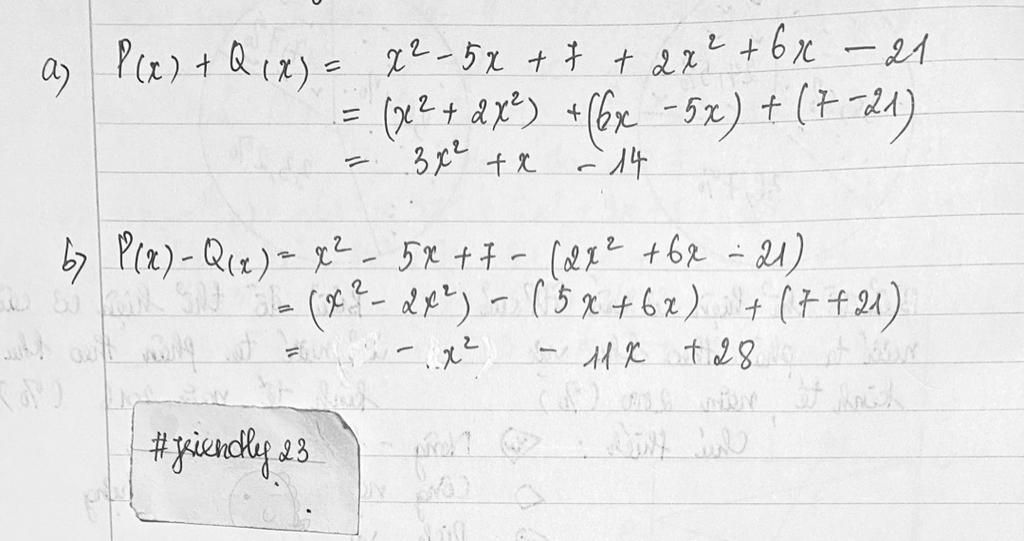 a) P(x) + Q(x) = x² - 5x + 7 + 2x² + 6x - 21
= (x² + 2x²) + (6x - 5x) + (7 - 21)
= 3x² + x - 14
b) P(x) - Q(x) = x² - 5x + 7 - (2x² + 6x - 21)
= (x² - 2x²) - (5x + 6x) + (7 + 21)
= - x² - 11x + 28
#friendly23